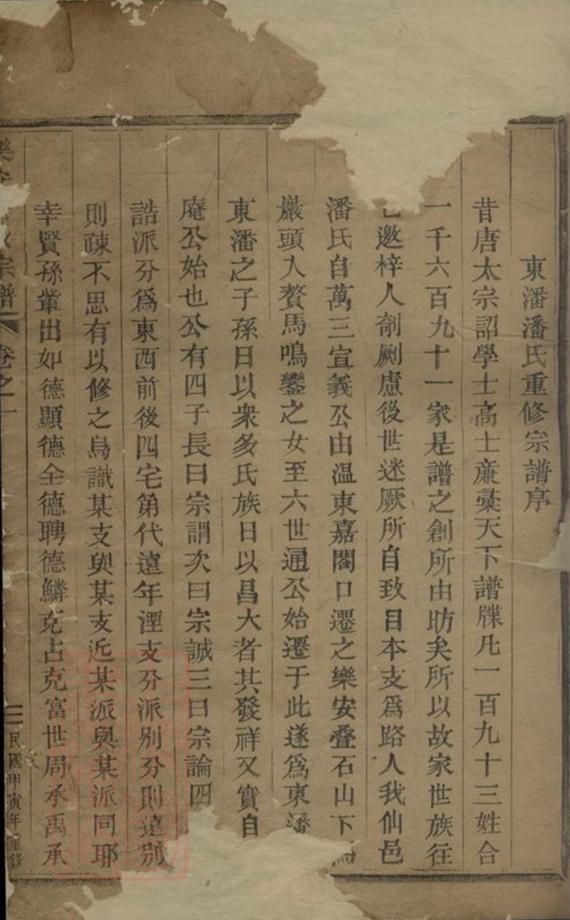 東潘潘氏重修宗譜序
昔唐太宗詔學士高士廉彚天下譜牒凡一百九十三姓合
一千六百九十一家是譜之創所由昉矣所以故家世族往
邀梓人剞劂慮後世迷厥所自致目本支爲路人我仙邑
潘氏自萬三宣義公由温東嘉閣口遷之樂安叠石山下
巖頭入赘馬鳴鑾之女至六世通公始遷于此遂爲東潘
東潘之子孫日以衆多氏族日以昌大者其發祥又實自
庵公始也公有四子長曰宗謂次曰宗誠三曰宗論四
誥派分爲東西前後四宅第代遠年湮支分派别分則遠别
則疎不思有以修之烏識某支與某支近某派與某派同耶
幸賢孫軰出如德顯德全德聘德鱗克占克富世周承禹承
宗譜 卷之一
二 民國甲寅年重修